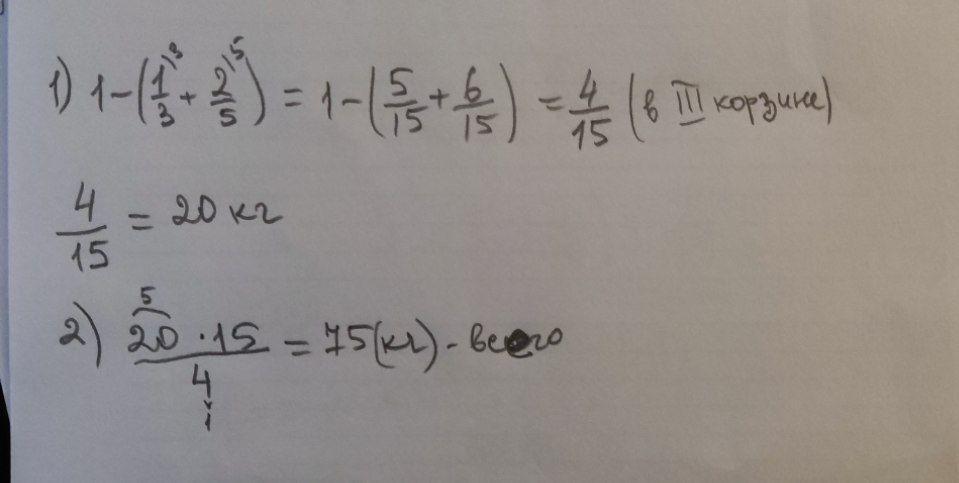 1) 1-(1/3\3 + 2/5\5) = 1-(5/15 + 6/15) = 4/15 (в III корзине)
4/15 = 20 кг
2) 20\5 · 15 / 4\1 = 75(кг) - всего